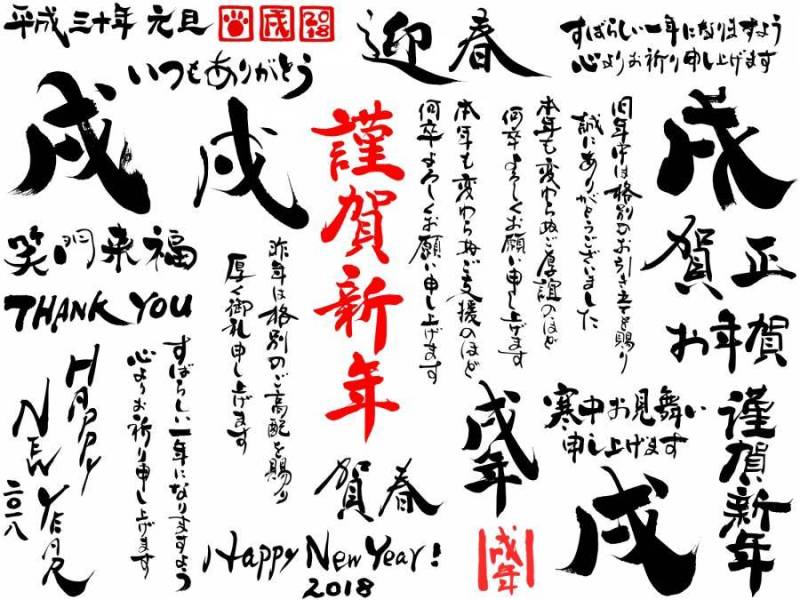 平成三十年 元旦
戌
2018
迎春
すばらしい一年になりますよう
心よりお祈り申し上げます
いつもありがとう
戌
戌
謹賀新年
旧年中は格別のお引き立てを賜り
誠にありがとうございました
本年も変わらぬご厚誼のほど
何卒よろしくお願い申し上げます
本年も変わらぬご支援のほど
何卒よろしくお願い申し上げます
戌
笑門来福
THANK YOU
昨年は格別のご高配を賜り
厚く御礼申し上げます
賀正
お年賀
HAPPY
NEW YEAR
二〇一八
すばらしい一年になりますよう
心よりお祈り申し上げます
賀春
戌年
寒中お見舞い
申し上げます
謹賀新年
Happy New Year!
2018
戌年
戌